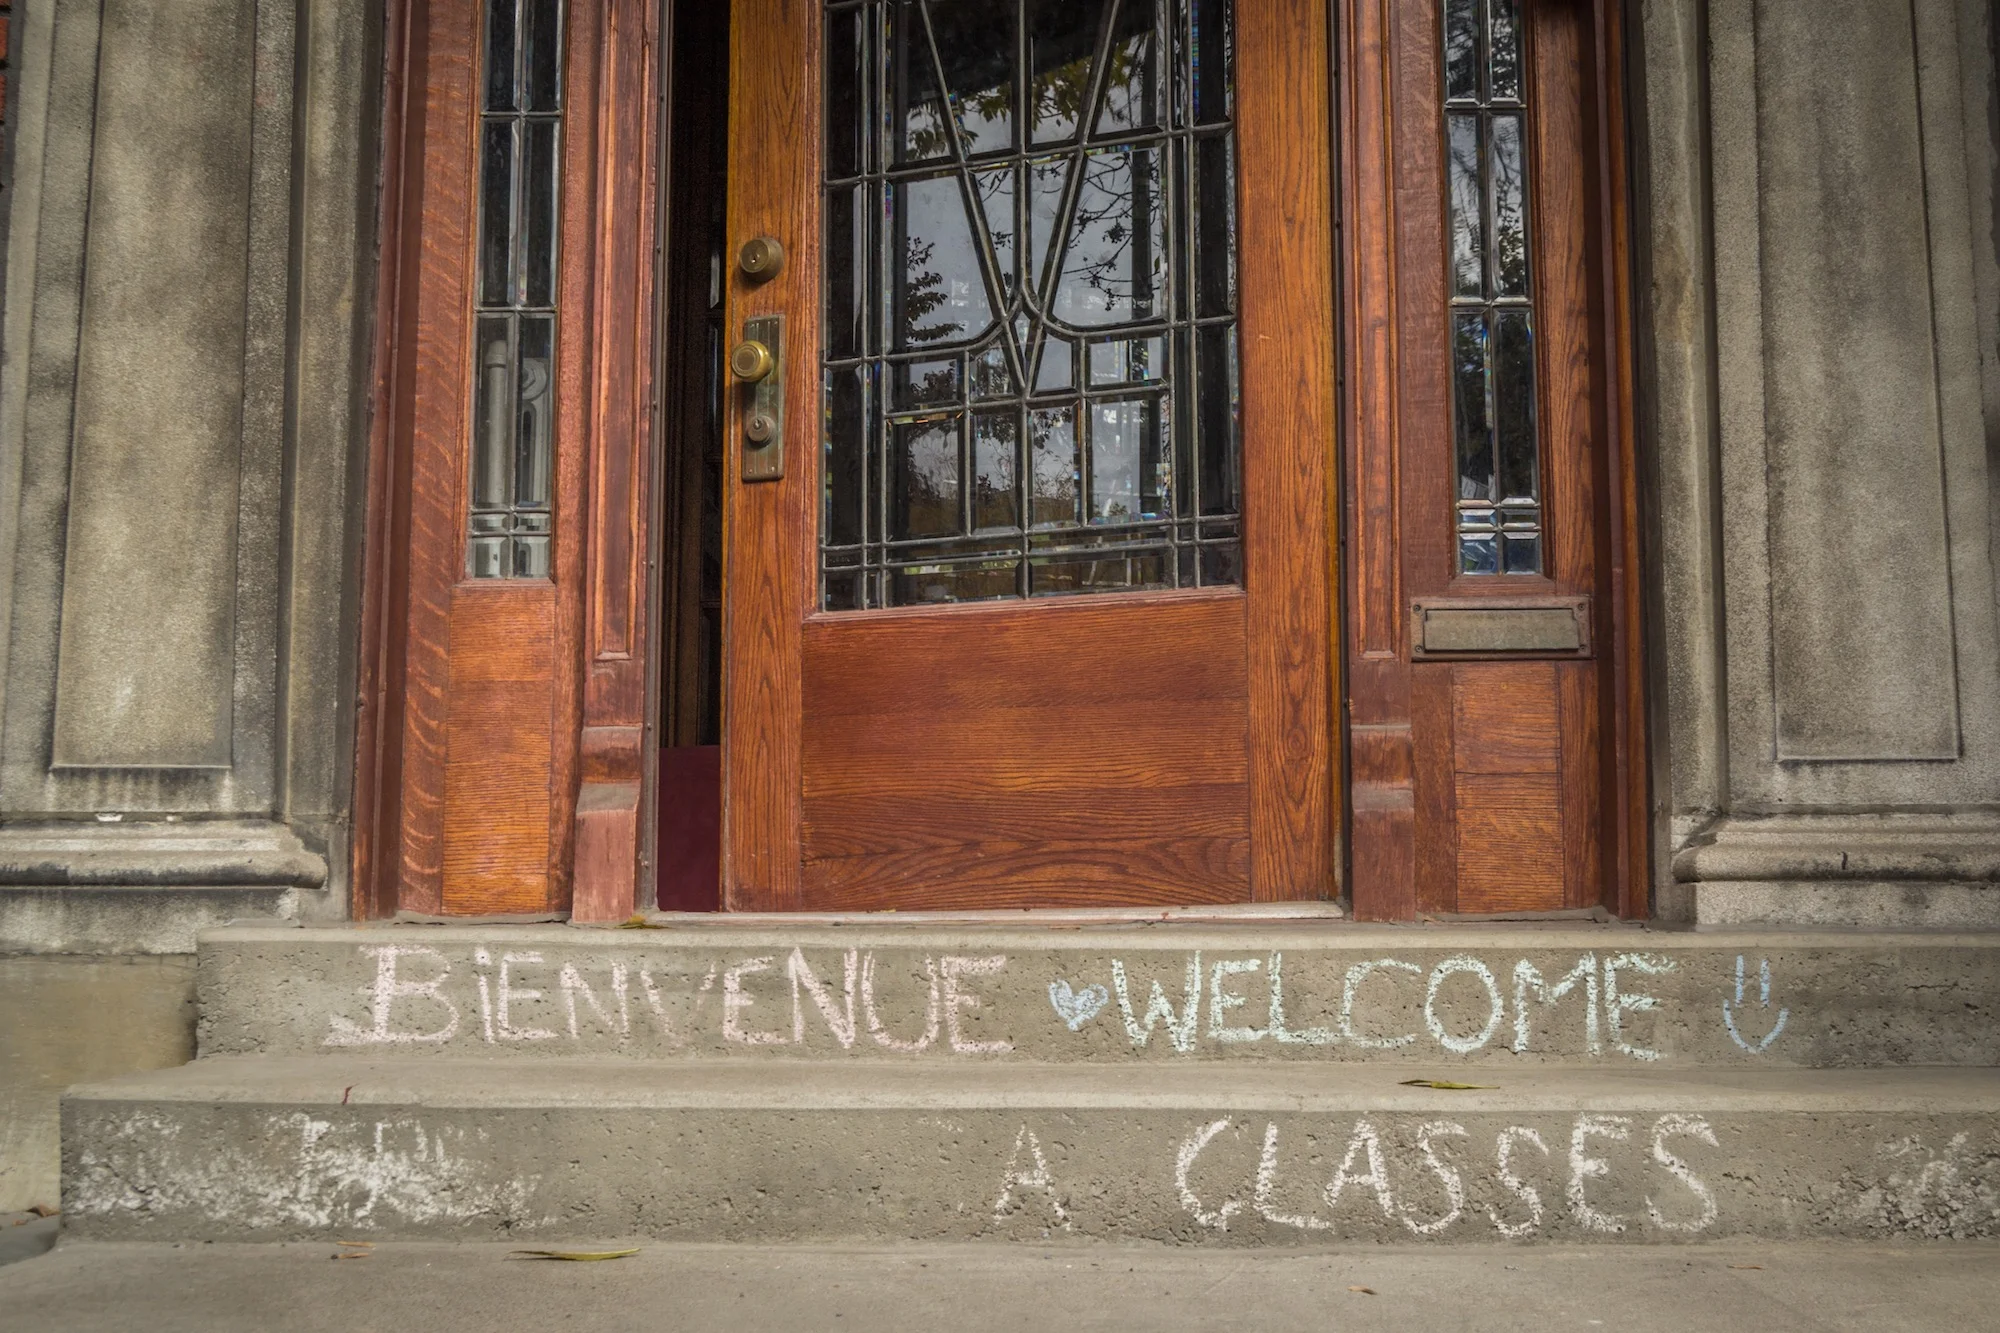 BIENVENUE ♥ WELCOME
A CLASSES